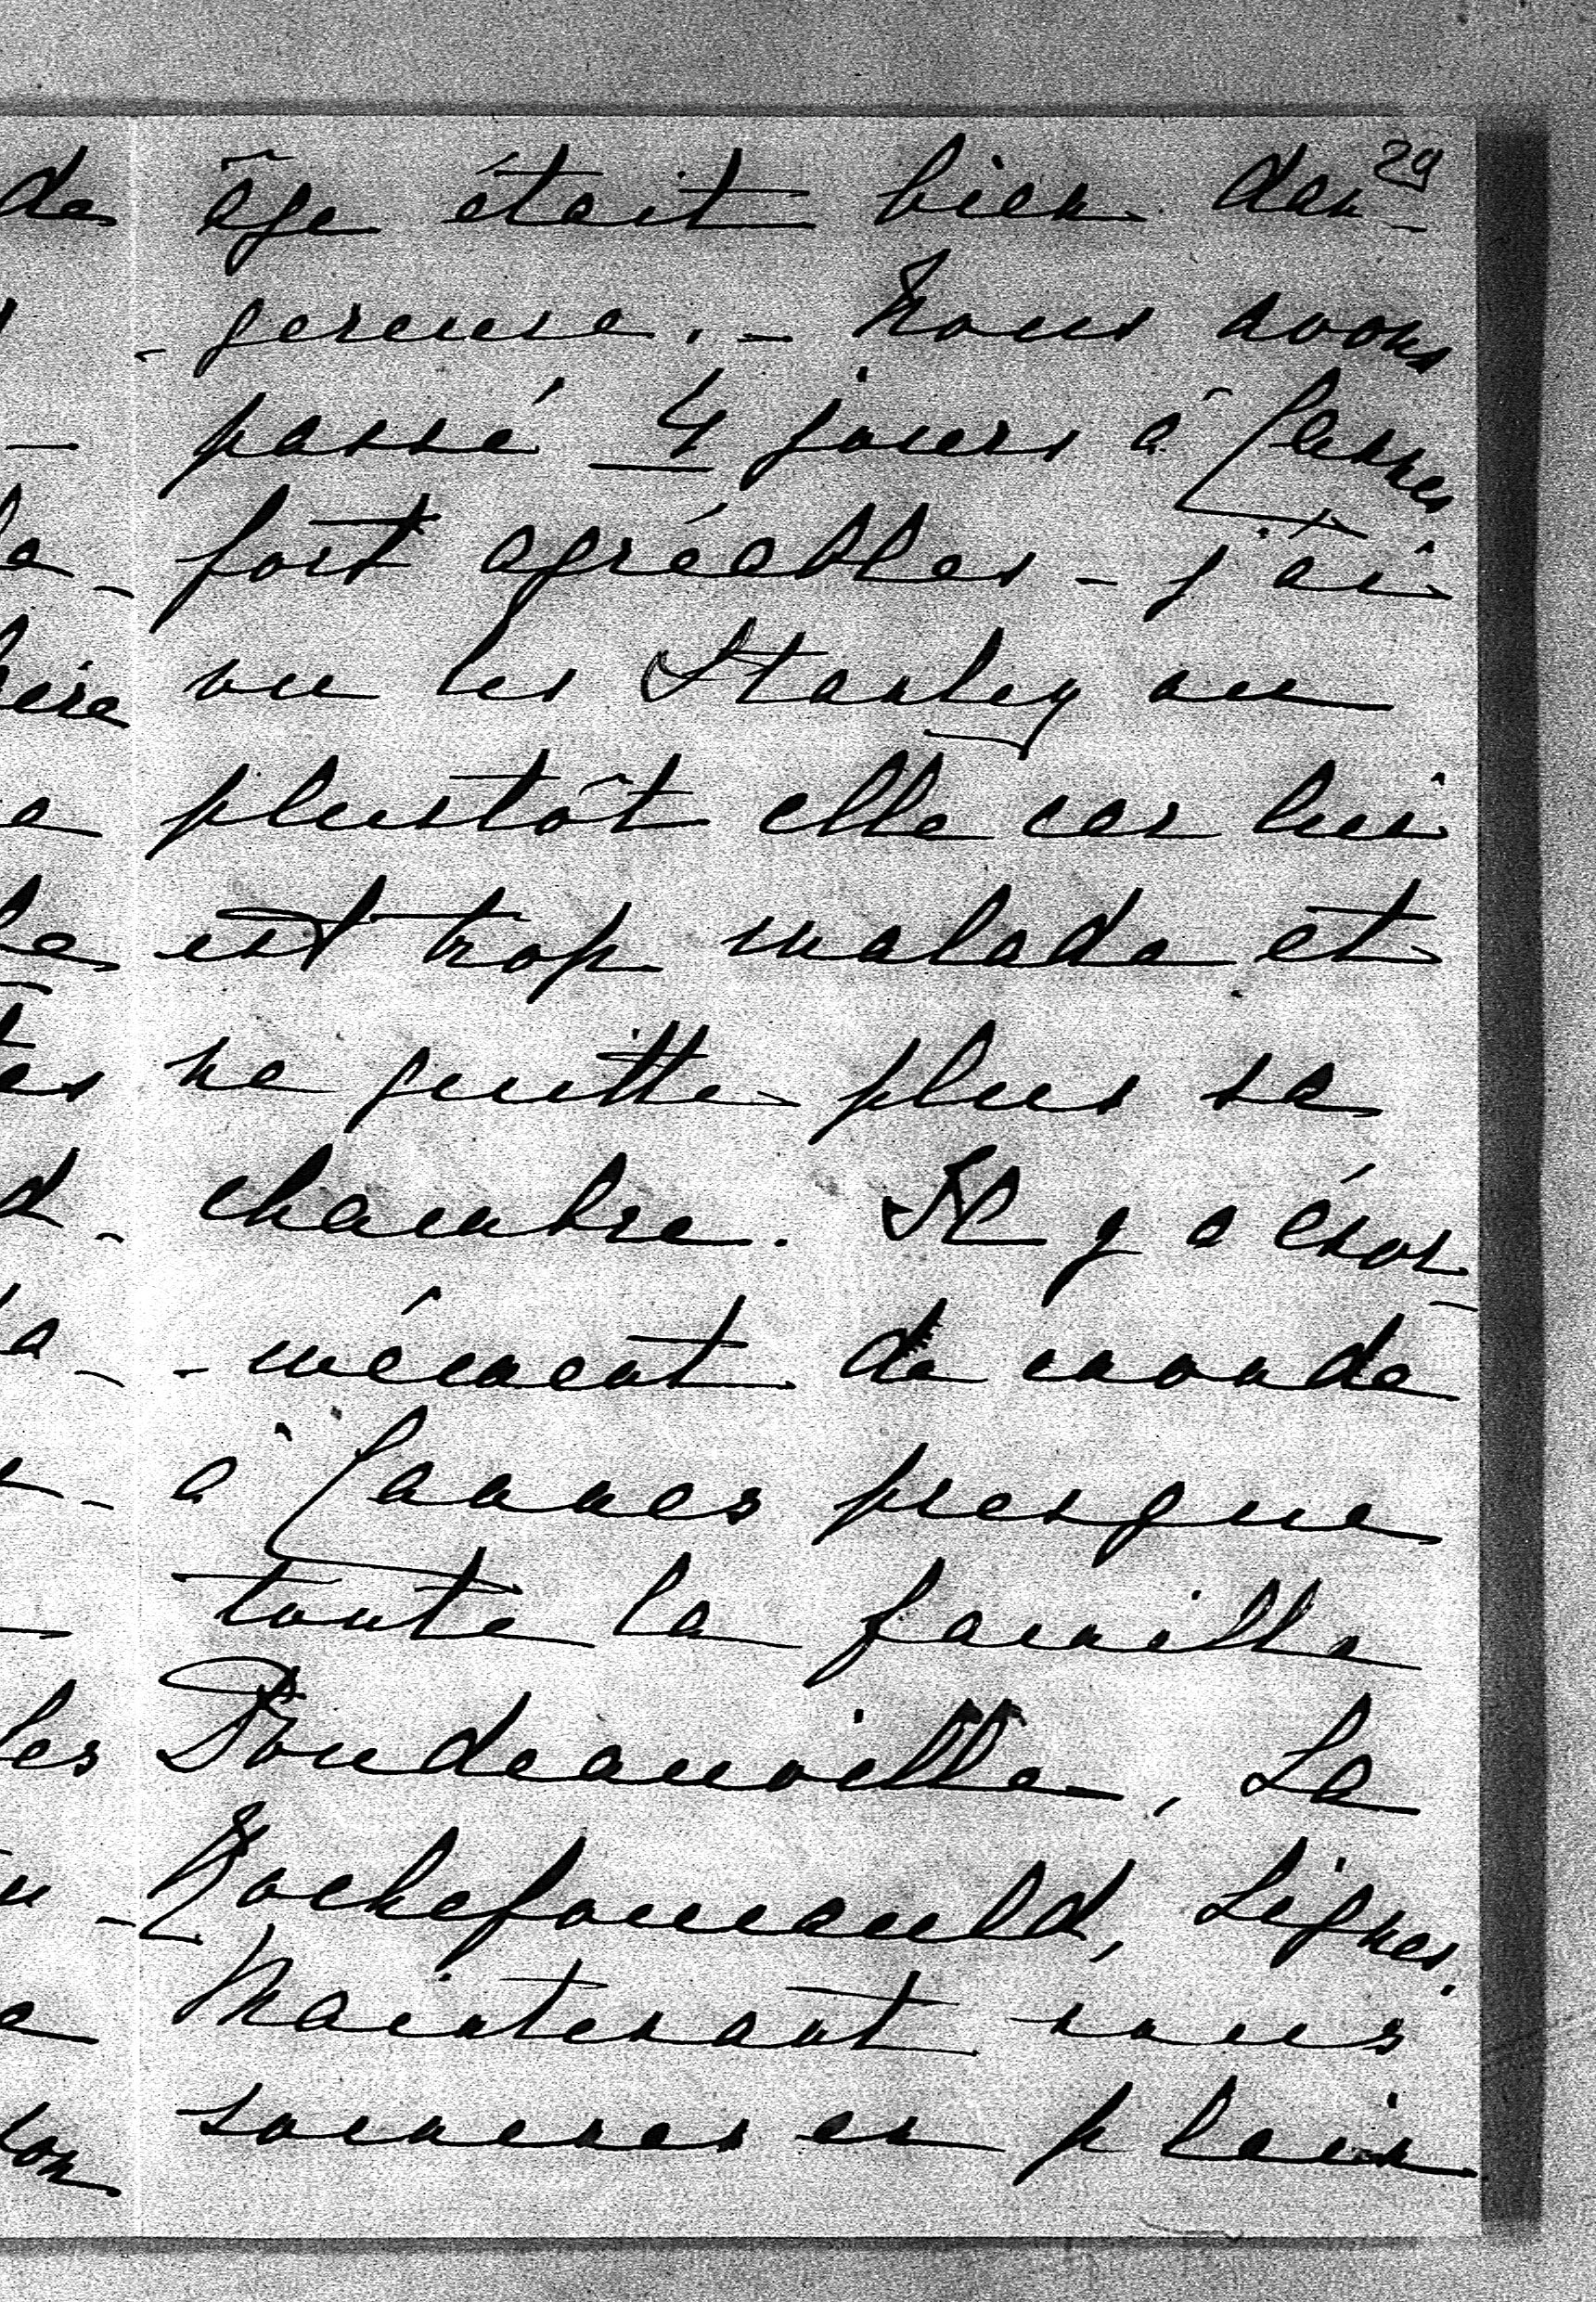 29
de âge était bien dan-
-gereuse. - Nous avons
passé 4 jours à Cannes
fort agréables - j'ai
vu les Stanley ou
plustôt elle car lui
est trop malade et
ne quitte plus sa
chambre. Il y a énor-
-mément de monde
à Cannes presque
toute la famille
les Doudeauville, La
Rochefoucauld, Lignes.
Maintenant nous
sommes en plein